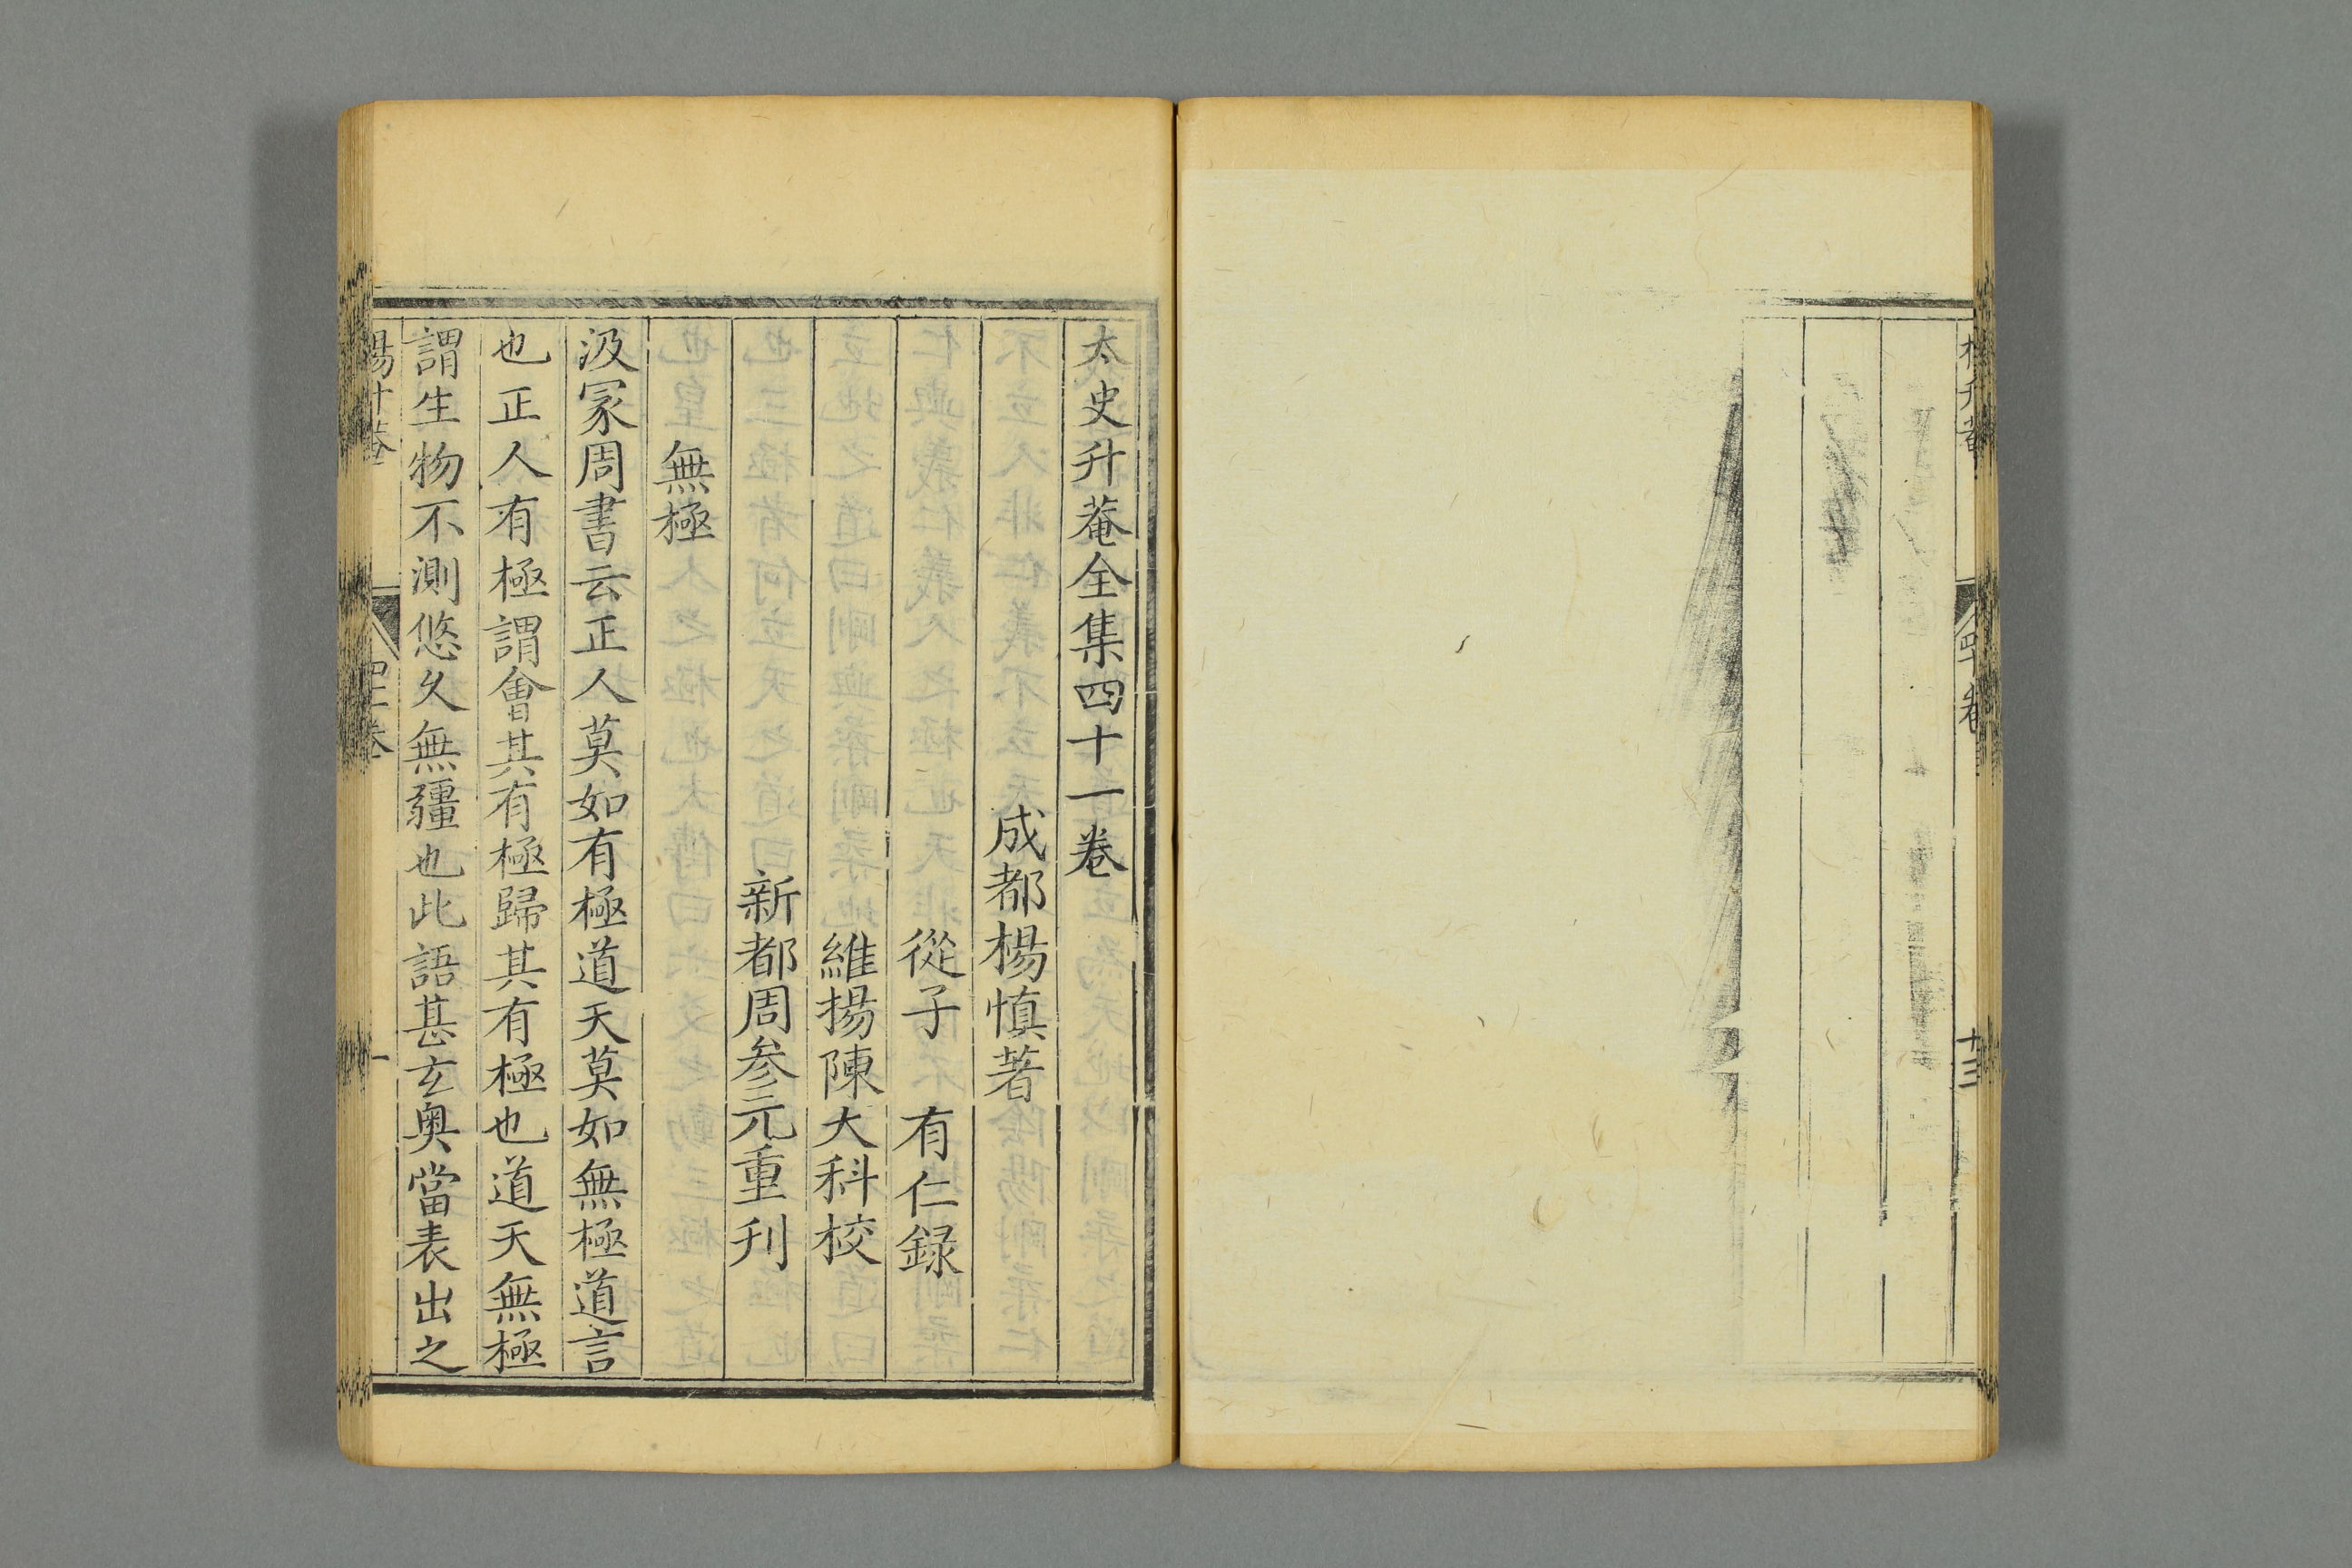 四十卷
十三
太史升菴全集四十一卷
成都楊慎著
從子有仁録
維揚陳大科校
新都周參元重刊
無極
汲冢周書云正人莫如有極道天莫如無極道言
也正人有極謂會其有極歸其有極也道天無極
謂生物不測悠久無疆也此語甚玄奥當表出之